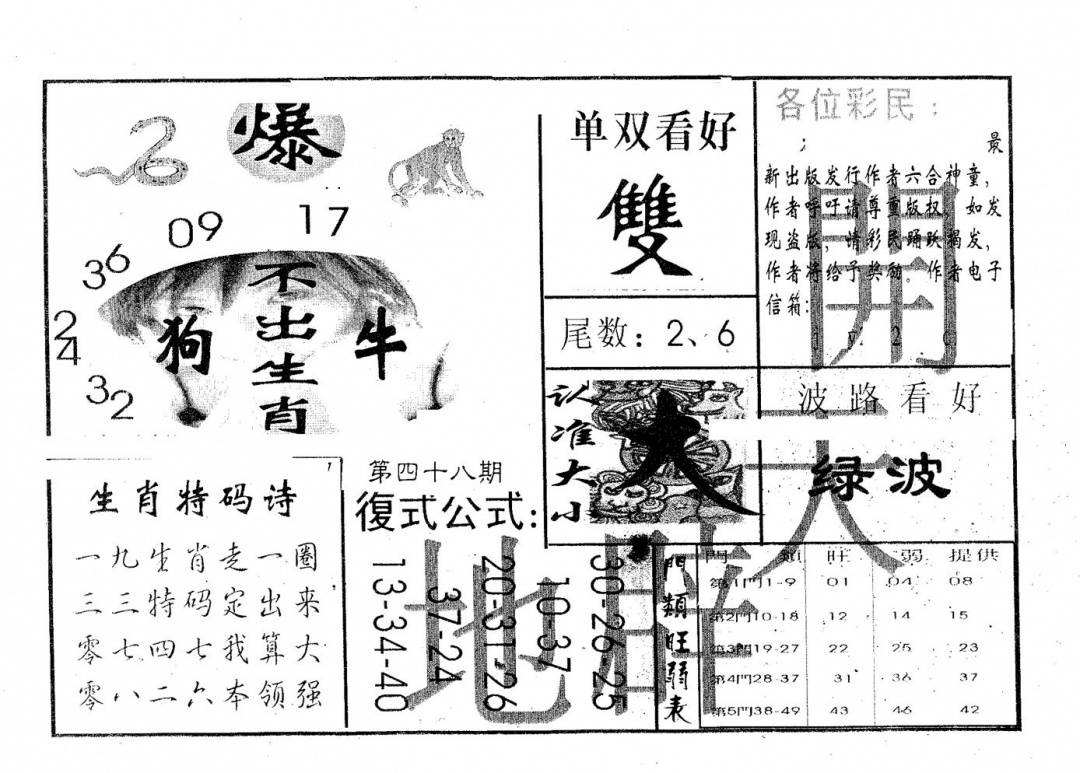 爆
17
09
36
24
32
不出生肖
狗
牛
单双看好
雙
尾数：2、6
认准大小
大
各位彩民：
最
新出版发行作者六合神童，
作者呼吁请尊重版权，如发
现盗版，情彩民踊跃揭发，
作者将给予奖励。作者电子
信箱：
波路看好
绿波
開天地牌
生肖特码诗
一九生肖走一圈
三三特码定出来
零七四七我算大
零八二六本领强
第四十八期
復式公式：
13-34-40
37-24
20-31-26
10-37
30-26-25
門類旺弱表
門類 旺 弱 提供
第1門1-9 01 04 08
第2門10-18 12 14 15
第3門19-27 22 25 23
第4門28-37 31 36 37
第5門38-49 43 46 42